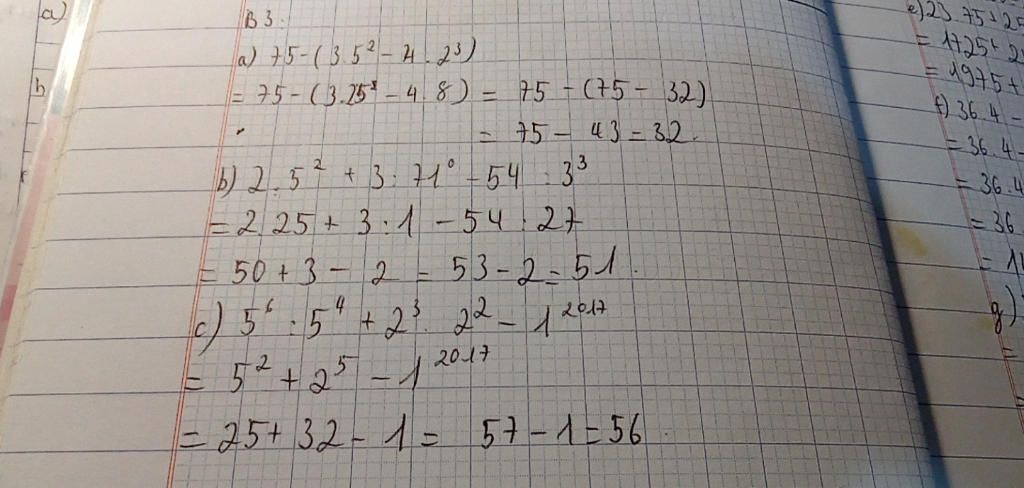 a)
b
B 3:
a) 75-(3.5² - 4.2³)
= 75-(3.25 - 4.8) = 75-(75- 32)
= 75 - 43 = 32.
b) 2.5² + 3:71⁰ - 54 : 3³
= 2.25 + 3:1 - 54:27
= 50+3- 2 = 53-2=51.
c) 5⁶ : 5⁴ + 2³. 2² - 1²⁰¹⁷
= 5² + 2⁵ - 1²⁰¹⁷
= 25+ 32-1 = 57-1=56.
e) 23.75+25
= 1725+
= 1975+
f) 36.4-
= 36.4-
= 36.4
= 36
g)
=